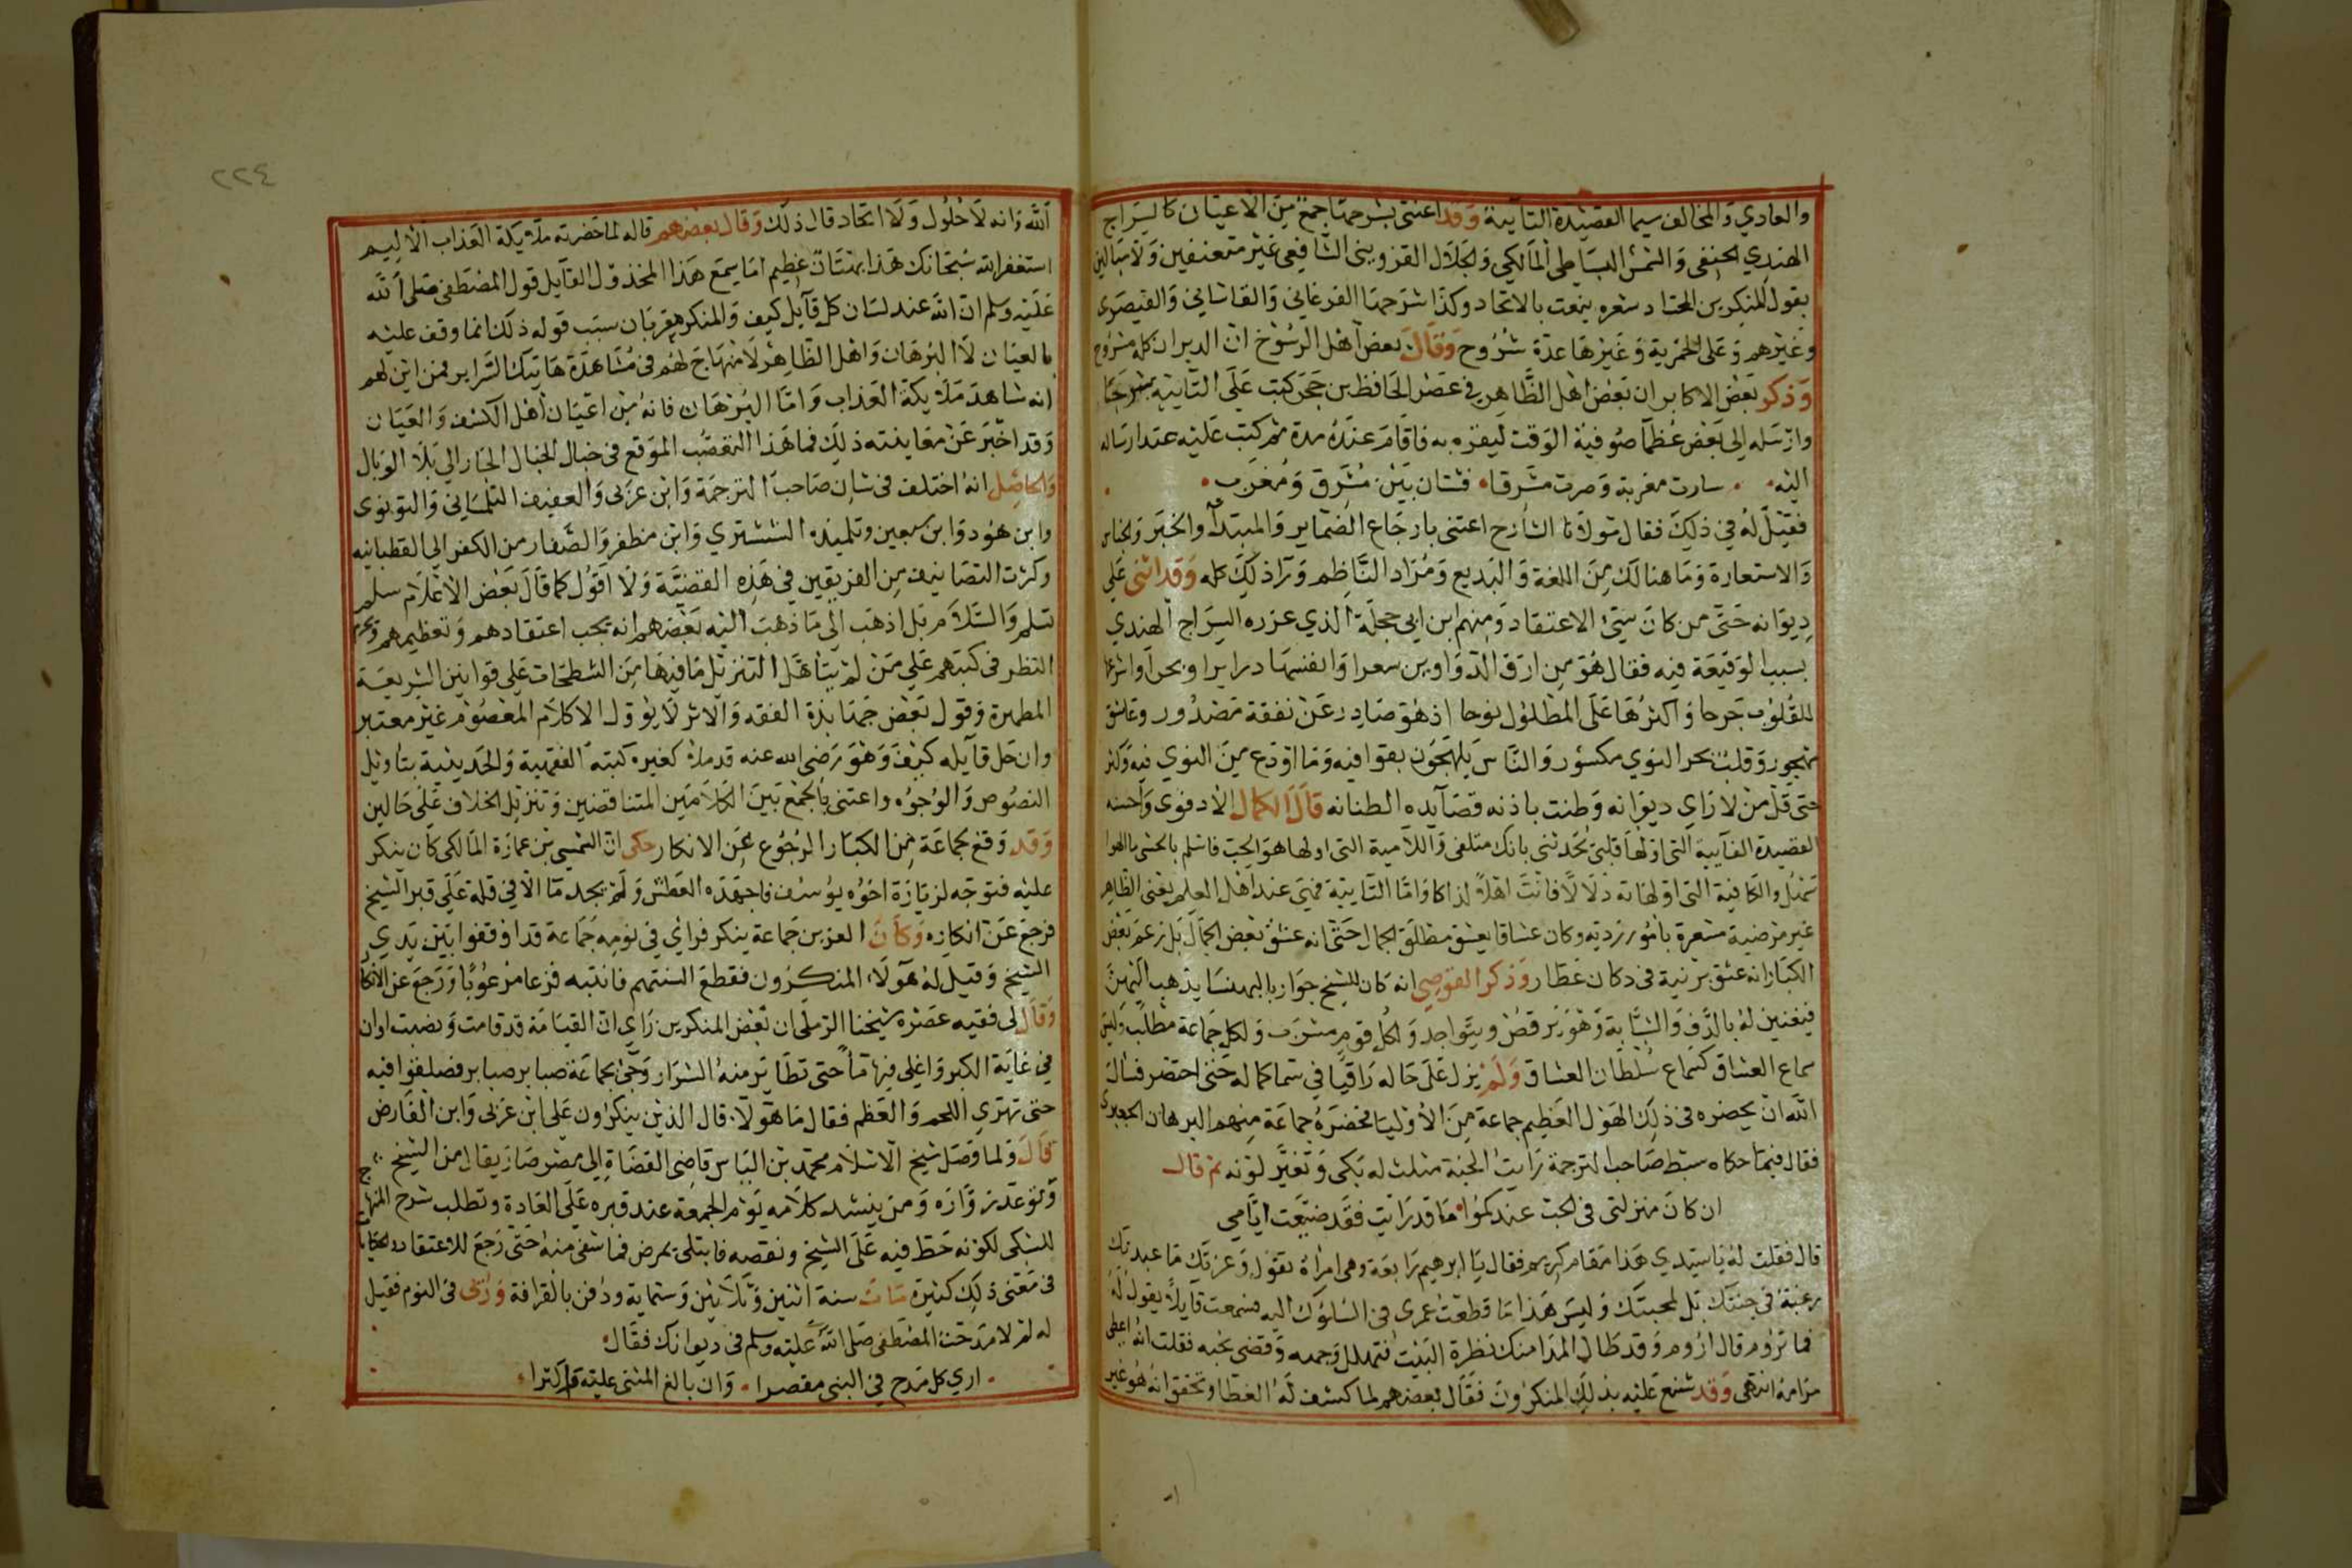 والعادي والمخالف سيما القصيدة التائية وقد اعتنى بشرحها جمع من الاعيان كالسراج
الهندي الحنفي والشمس البساطي المالكي والجلال القزويني الشافعي غير متعنفين ولا مبالين
بقول المنكرين الحتاد شعره ينعت بالاتحاد وكذا شرحها الفرغاني والقاشاني والقيصري
وغيرهم وعلى الخمرية وغيرها عدة شروح وقال بعض اهل الرسوخ ان الديوان كله مشروح
وذكر بعض الاكابر ان بعض اهل الظاهر في عصر الحافظ بن حجر كتب على التائية شرحا
وارسله الى بعض عظما صوفية الوقت ليقره به فاقام عنده مدة ثم كتب عليه عند ارساله
اليه سارت مغربة وصرت مشرقا فشتان بين مشرق ومغرب
فقيل له في ذلك فقال مولانا الشارح اعتنى بارجاع الضماير والمبتدا والخبر والجناس
والاستعارة وما هنالك من اللغة والبديع ومراد الناظم ورا ذلك كله وقد اثنى على
ديوانه حتى من كان سيئ الاعتقاد ومنهم ابن ابي حجلة الذي عزره السراج الهندي
بسبب الوقيعة فيه فقال هو من ارق الدواوين شعرا وانفسها درا برا وبحرا واسرعها
للقلوب جرحا واكثرها على الطلول نوحا اذ هو صادر عن نفثة مصدور وعاشق
مهجور وقلب بحر النوى مكسور والناس يلهجون بقوافيه وما اودع من النوى فيه وكثر
حتى قل من لا راى ديوانه وطنت باذنه قصايده الطنانه قال الكمال الادفوي واحسنه
القصيدة الفائية التي اولها قلبي يحدثني بانك متلفي واللامية التي اولها هو الحب فاسلم بالحشى ما الهوا
سهل والكافية التي اولها ته دلالا فانت اهل لذاكا واما التائية فهي عند اهل العلم يعني الظاهر
غير مرضية مشعرة بامور ردية وكان عشاقا يعشق مطلق الجمال حتى انه عشق بعض الجمال بل زعم بعض
الكبار انه عشق برنية في دكان عطار وذكر القوصي انه كان للشيخ جوار بالبهنسا يذهب اليهن
فيغنين له بالدف والشبابة وهو يرقص ويتواجد ولكل قوم مشرب ولكل جماعة مطلب وليس
سماع العشاق كسماع سلطان العشاق ولم يزل على حاله راقيا في سما كماله حتى احتضر فسال
الله ان يحضره في ذلك الهول العظيم جماعة من الاوليا فحضره جماعة منهم البرهان الجعبري
فقال فيما حكاه سبط صاحب الترجمة رايت الجنة مثلت له بكى وتغير لونه ثم قال
ان كان منزلتي في الحب عندكموا ما قد رايت فقد ضيعت ايامي
قال فقلت له يا سيدي هذا مقام كريم فقال يا ابرهيم رابعة وهي امراة تقول وعزتك ما عبدتك
رغبة في جنتك بل لمحبتك وليس هذا ما قطعت عمري في السلوك اليه فسمعت قايلا يقول له
فما تروم قال اروم وقد طال المدا منك نظرة البيت فتهلل وجهه وقضى نحبه فقلت انه اعطى
مرامه انتهى وقد شنع عليه بذلك المنكرون فقال بعضهم لما كشف له الغطا وتحقق انه هو غير
٢٢٤
الله وانه لا حلول ولا اتحاد قال ذلك وقال بعضهم قاله لما حضرته ملايكة العذاب الاليم
استغفر الله سبحانك هذا بهتان عظيم اما يسمع هذا المخذول القايل قول المصطفى صلى الله
عليه وسلم ان الله عند لسان كل قايل كيف والمنكر مقر بان سبب قوله ذلك انما وقف عليه
بالعيان لا البرهان واهل الظاهر لا منهاج لهم في مشاهدة هاتيك السراير فمن اين لهم
انه شاهد ملايكة العذاب واما البرهان فانه من اعيان اهل الكشف والعيان
وقد اخبر عن معاينته ذلك فما هذا التعصب الموقع في خبال الخبال الجار الى بلا الوبال
والحاصل انه اختلف في شان صاحب الترجمة وابن عربي والعفيف التلمساني والقونوي
وابن هود وابن سبعين وتلميذه الششتري وابن مظفر والصفار من الكفر الى القطبانيه
وكثرت التصانيف من الفريقين في هذه القضية ولا اقول كما قال بعض الاعلام سلم
تسلم والسلام بل اذهب الى ما ذهب اليه بعضهم انه يجب اعتقادهم وتعظيمهم ويحرم
النظر في كتبهم على من لم يتاهل التنزيل ما فيها من الشطحات على قوانين الشريعة
المطهرة وقول بعض جهابذة الفقه والاثر لا يؤول الا كلام المعصوم غير معتبر
وان جل قايله كيف وهو رضي الله عنه قد ملا كغيره كتبه الفقهية والحديثية بتاويل
النصوص والوجوه واعتنى بالجمع بين الكلامين المتناقضين وتنزيل الخلاف على حالين
وقد وقع لجماعة من الكبار الرجوع عن الانكار حكى ان الشمس بن عمارة المالكي كان ينكر
عليه فتوجه لزيارة اخوه يوسف فاجهده العطش ولم يجد ما الا في قلة على قبر الشيخ
فرجع عن انكاره وكان العز بن جماعة ينكر فراي في نومه جماعة قد اوقفوا بين يدي
الشيخ وقيل له هولاء المنكرون فقطع السنتهم فانتبه فزعا مرعوبا ورجع عن الانكار
وقال لي فقيه عصره شيخنا الرملي ان بعض المنكرين راي ان القيامة قد قامت ونصبت اوان
في غاية الكبر واغلي فيها ما حتى تطاير منه الشرار وجئ بجماعة ضباير ضباير فصلقوا فيه
حتى تهرى اللحم والعظم فقال ما هولاء قال الذين ينكرون على ابن عربي وابن الفارض
قال ولما وصل شيخ الاسلام محمد بن الياس قاضي القضاة الى مصر صار يقال من الشيخ
وتوعد زواره ومن ينشد كلامه يوم الجمعة عند قبره على العادة وتطلب شرح المنهاج
للسبكي لكونه حط فيه على الشيخ ونقصه فابتلى بمرض فما شفي منه حتى رجع للاعتقاد والحكايات
في معنى ذلك كثيرة مات سنة اثنين وثلاثين وستماية ودفن بالقرافة وروئى في النوم فقيل
له لم لا مدحت المصطفى صلى الله عليه وسلم في ديوانك فقال
اري كل مدح في النبي مقصرا وان بالغ المثني عليه واكثرا